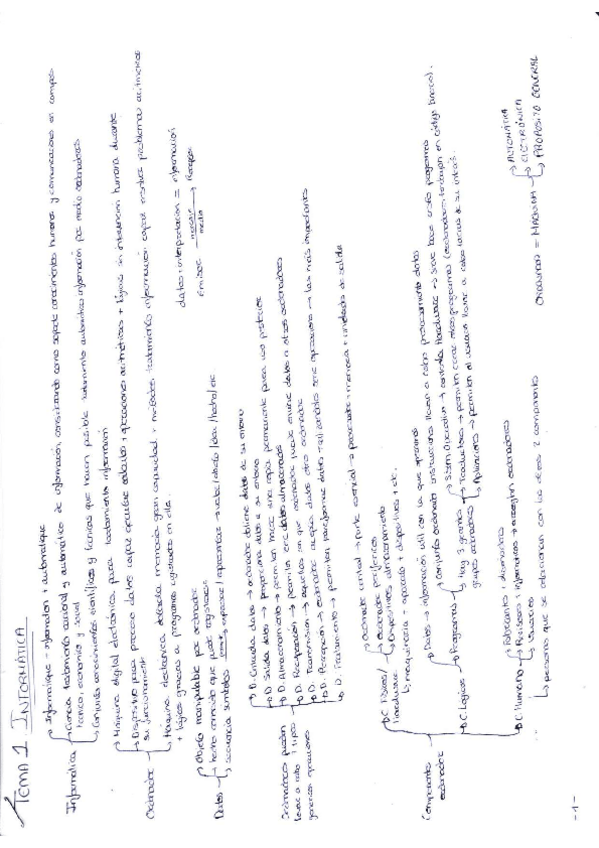 TEMA 1 INFORMÁTICA
Informatique - information + automatique
Informática → Ciencia tratamiento racional y automático de información, considerando como soporte conocimientos humanos y comunicaciones en campos
técnico, económico y social
Conjunto conocimientos científicos y técnicas que hacen posible tratamiento automático información por medio ordenadores
→ Máquina digital electrónica para tratamiento información
→ Dispositivo para procesar datos capaz ejecutar cálculos y operaciones aritméticas y lógicas sin intervención humana durante
su funcionamiento
Ordenador
Máquina electrónica dotada memoria gran capacidad y métodos tratamiento información capaz resolver problemas aritméticos
+ lógicos gracias a programas registrados en ella.
→ Objeto manipulable por ordenador
datos + interpretación = información
Datos → hecho conocido que puede registrarse
Emisor mensaje medio → Receptor
→ secuencia símbolos
→ D. Entrada datos → ordenador obtiene datos de su entorno
Ordenadores pueden → D. Salida datos → proporciona datos a su entorno
llevar a cabo 7 tipos → D. Almacenamiento → permiten hacer una copia permanente para uso posterior
genéricos operaciones → D. Recuperación → permiten leer datos almacenados
→ D. Transmisión → aquellas en que ordenador puede enviar datos a otros ordenadores
→ D. Recepción → ordenador acepta datos otro ordenador
→ D. Tratamiento → permiten transformar datos realizándoles serie operaciones → las más importantes
→ ordenador central → parte esencial → procesador + memoria + unidades de salida
→ C. Físicos / Hardware → ordenador periféricos
→ Dispositivos almacenamiento
→ maquinaria + aparatos + dispositivos + etc.
Componentes ordenador
→ Datos → información útil con la que operamos
→ C. Lógicos → Programas → conjunto ordenado instrucciones llevar a cabo procesamiento datos
Hay 3 grandes grupos → Sistem Operativo → controla Hardware → sirve base resto programas
→ Traductores → permiten crear otros programas (ordenadores trabajan en código binario).
→ Aplicaciones → permiten al usuario llevar a cabo tareas de su interés.
→ C. Humano → Fabricantes y diseñadores
→ Profesores y informáticos
→ Usuarios
→ personas que se relacionan con los otros 2 componentes
ORDENADOR = MÁQUINA → AUTOMÁTICA
→ ELECTRÓNICA
→ PROPÓSITO GENERAL
-1-